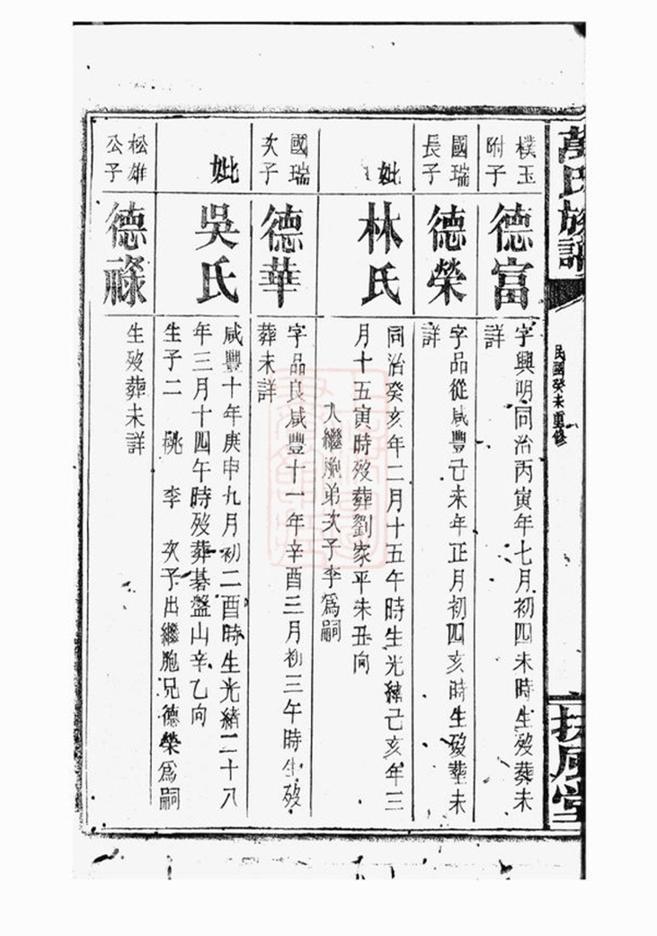 萬氏族譜
民國癸未重修
扶風堂
樸玉
附子
德富
字興明同治丙寅年七月初四未時生歿葬未
詳
國瑞
長子
德榮
字品從咸豐己未年正月初四亥時生歿葬未
詳
妣
林氏
同治癸亥年二月十五午時生光緒己亥年三
月十五寅時歿葬劉家平未丑向
入繼胞弟次子李爲嗣
國瑞
次子
德華
字品良咸豐十一年辛酉三月初三午時生歿
葬未詳
妣
吳氏
咸豐十年庚申九月初二酉時生光緒二十八
年三月十四午時歿葬碁盤山辛乙向
生子二 桃 李 次子出繼胞兄德榮爲嗣
松雄
公子
德祿
生歿葬未詳